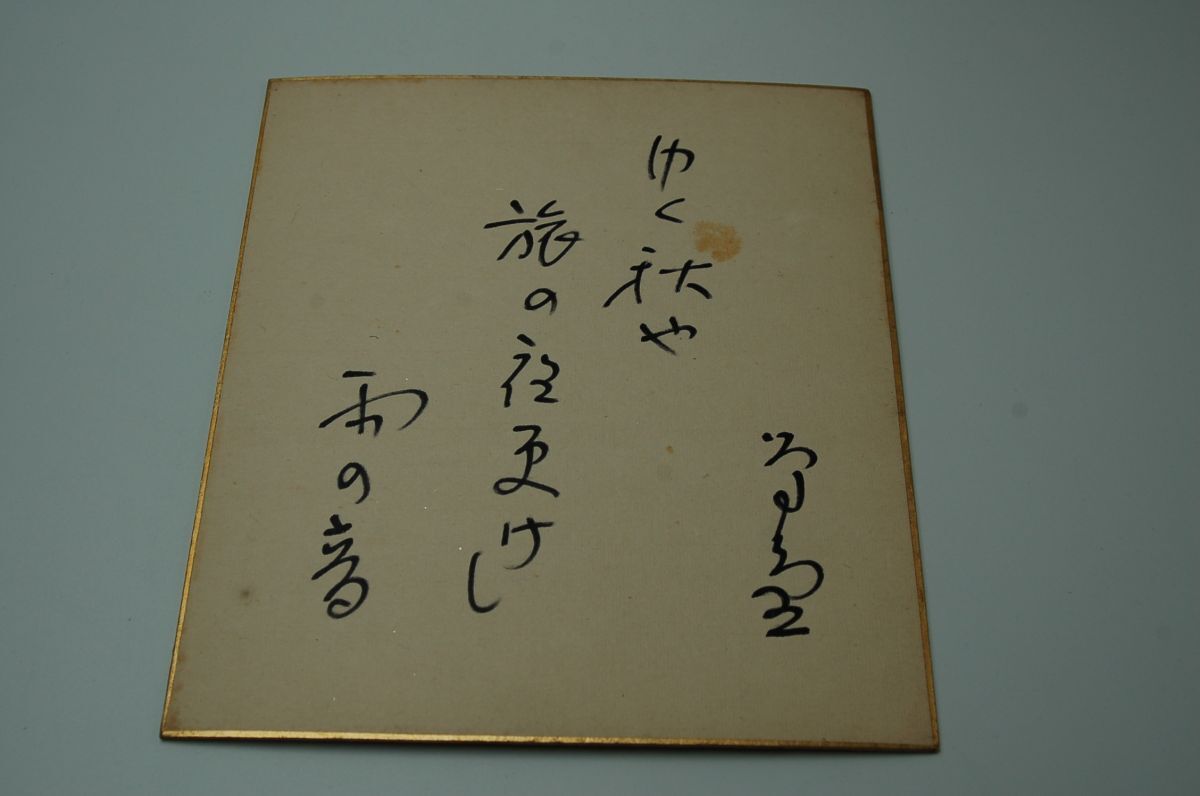 ゆく秋や
旅の夜更けし
雨の音